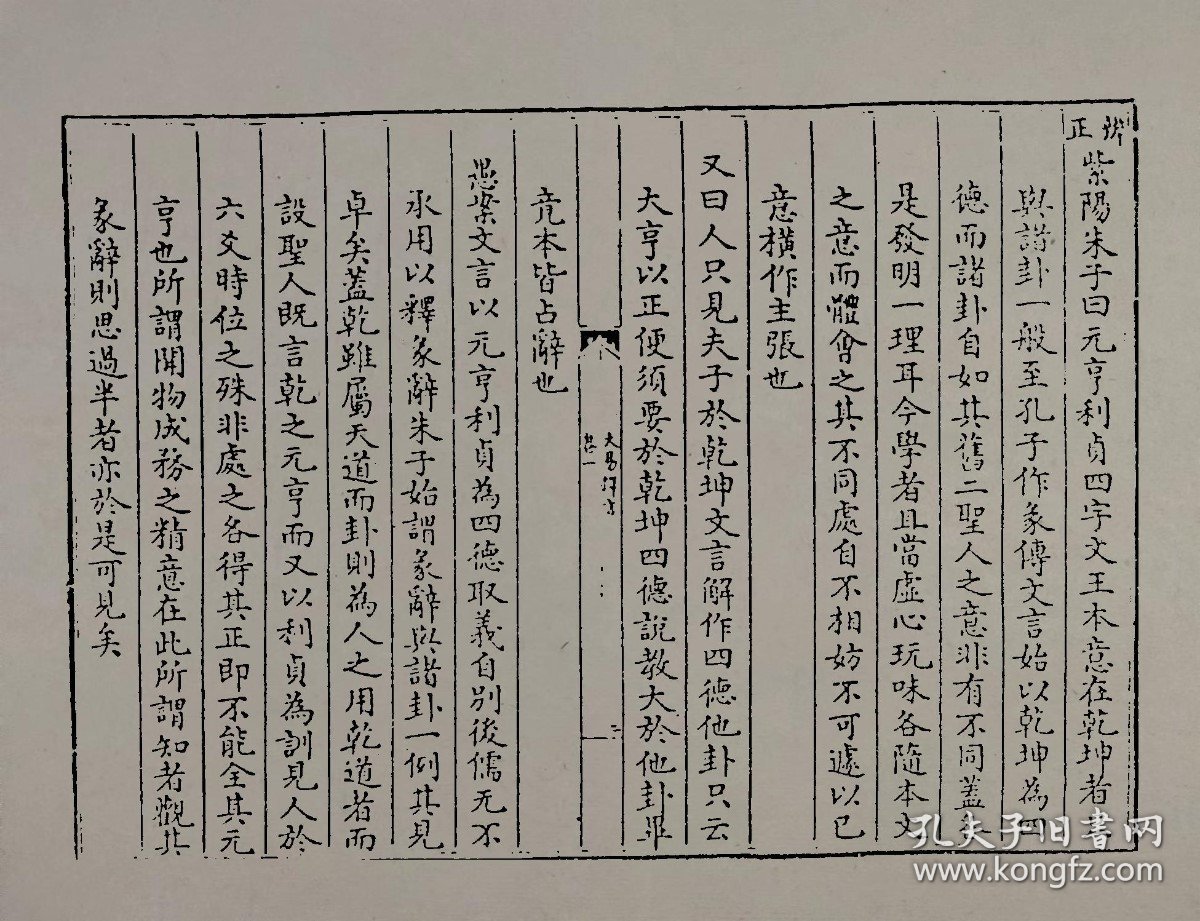 辨正
紫陽朱子曰元亨利貞四字文王本意在乾坤者只
與諸卦一般至孔子作彖傳文言始以乾坤為四
德而諸卦自如其舊二聖人之意非有不同蓋各
是發明一理耳今學者且當虛心玩味各隨本文
之意而體會之其不同處自不相妨不可遽以己
意橫作主張也
又曰人只見夫子於乾坤文言解作四德他卦只云
大亨以正便須要於乾坤四德說教大於他卦畢
大易辨志
卷一
二
竟本皆占辭也
愚案文言以元亨利貞為四德取義自別後儒无不
承用以釋彖辭朱子始謂彖辭與諸卦一例其見
卓矣蓋乾雖屬天道而卦則為人之用乾道者而
設聖人既言乾之元亨而又以利貞為訓見人於
六爻時位之殊非處之各得其正即不能全其元
亨也所謂開物成務之精意在此所謂知者觀其
彖辭則思過半者亦於是可見矣
孔夫子旧書网
www.kongfz.com